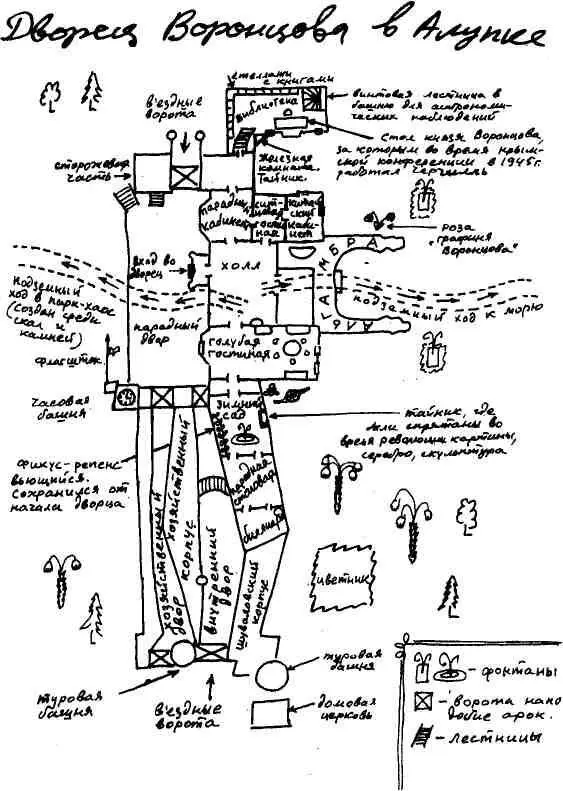 Дворец Воронцова в Алупке
стеллажи
с книгами
библиотека
винтовая лестница в
башню для астрономи-
ческих наблюдений
въездные
ворота
стол князя Воронцова,
за которым во время крым-
ской конференции в 1945г.
работал Черчилль
железная
комната.
Тайник.
сторожевая
часть
парадный
кабинет
сит-
цевая
гос-
тиная
китай-
ский
каби-
нет
роза
"графиня
Воронцова"
вход во
дворец
холл
ГАЛАМБРА
подземный
ход в парк-хаос
(создан среди
скал и
камней)
подземный ход к морю
парадный
двор
голубая
гостиная
флагшток
часовая
башня
зимний
сад
тайник, где
были спрятаны во
время революции картины,
серебро, скульптура
фикус-репенс
вьющийся.
Сохранился от
начала дворца
парадная
столовая
бильярд
хозяйственный
корпус
хозяйственный
двор
внутренний
двор
шуваловский
корпус
цветник
туровая
башня
туровая
башня
въездные
ворота
домовая
церковь
- фонтаны
- ворота напо
добие арок.
- лестницы